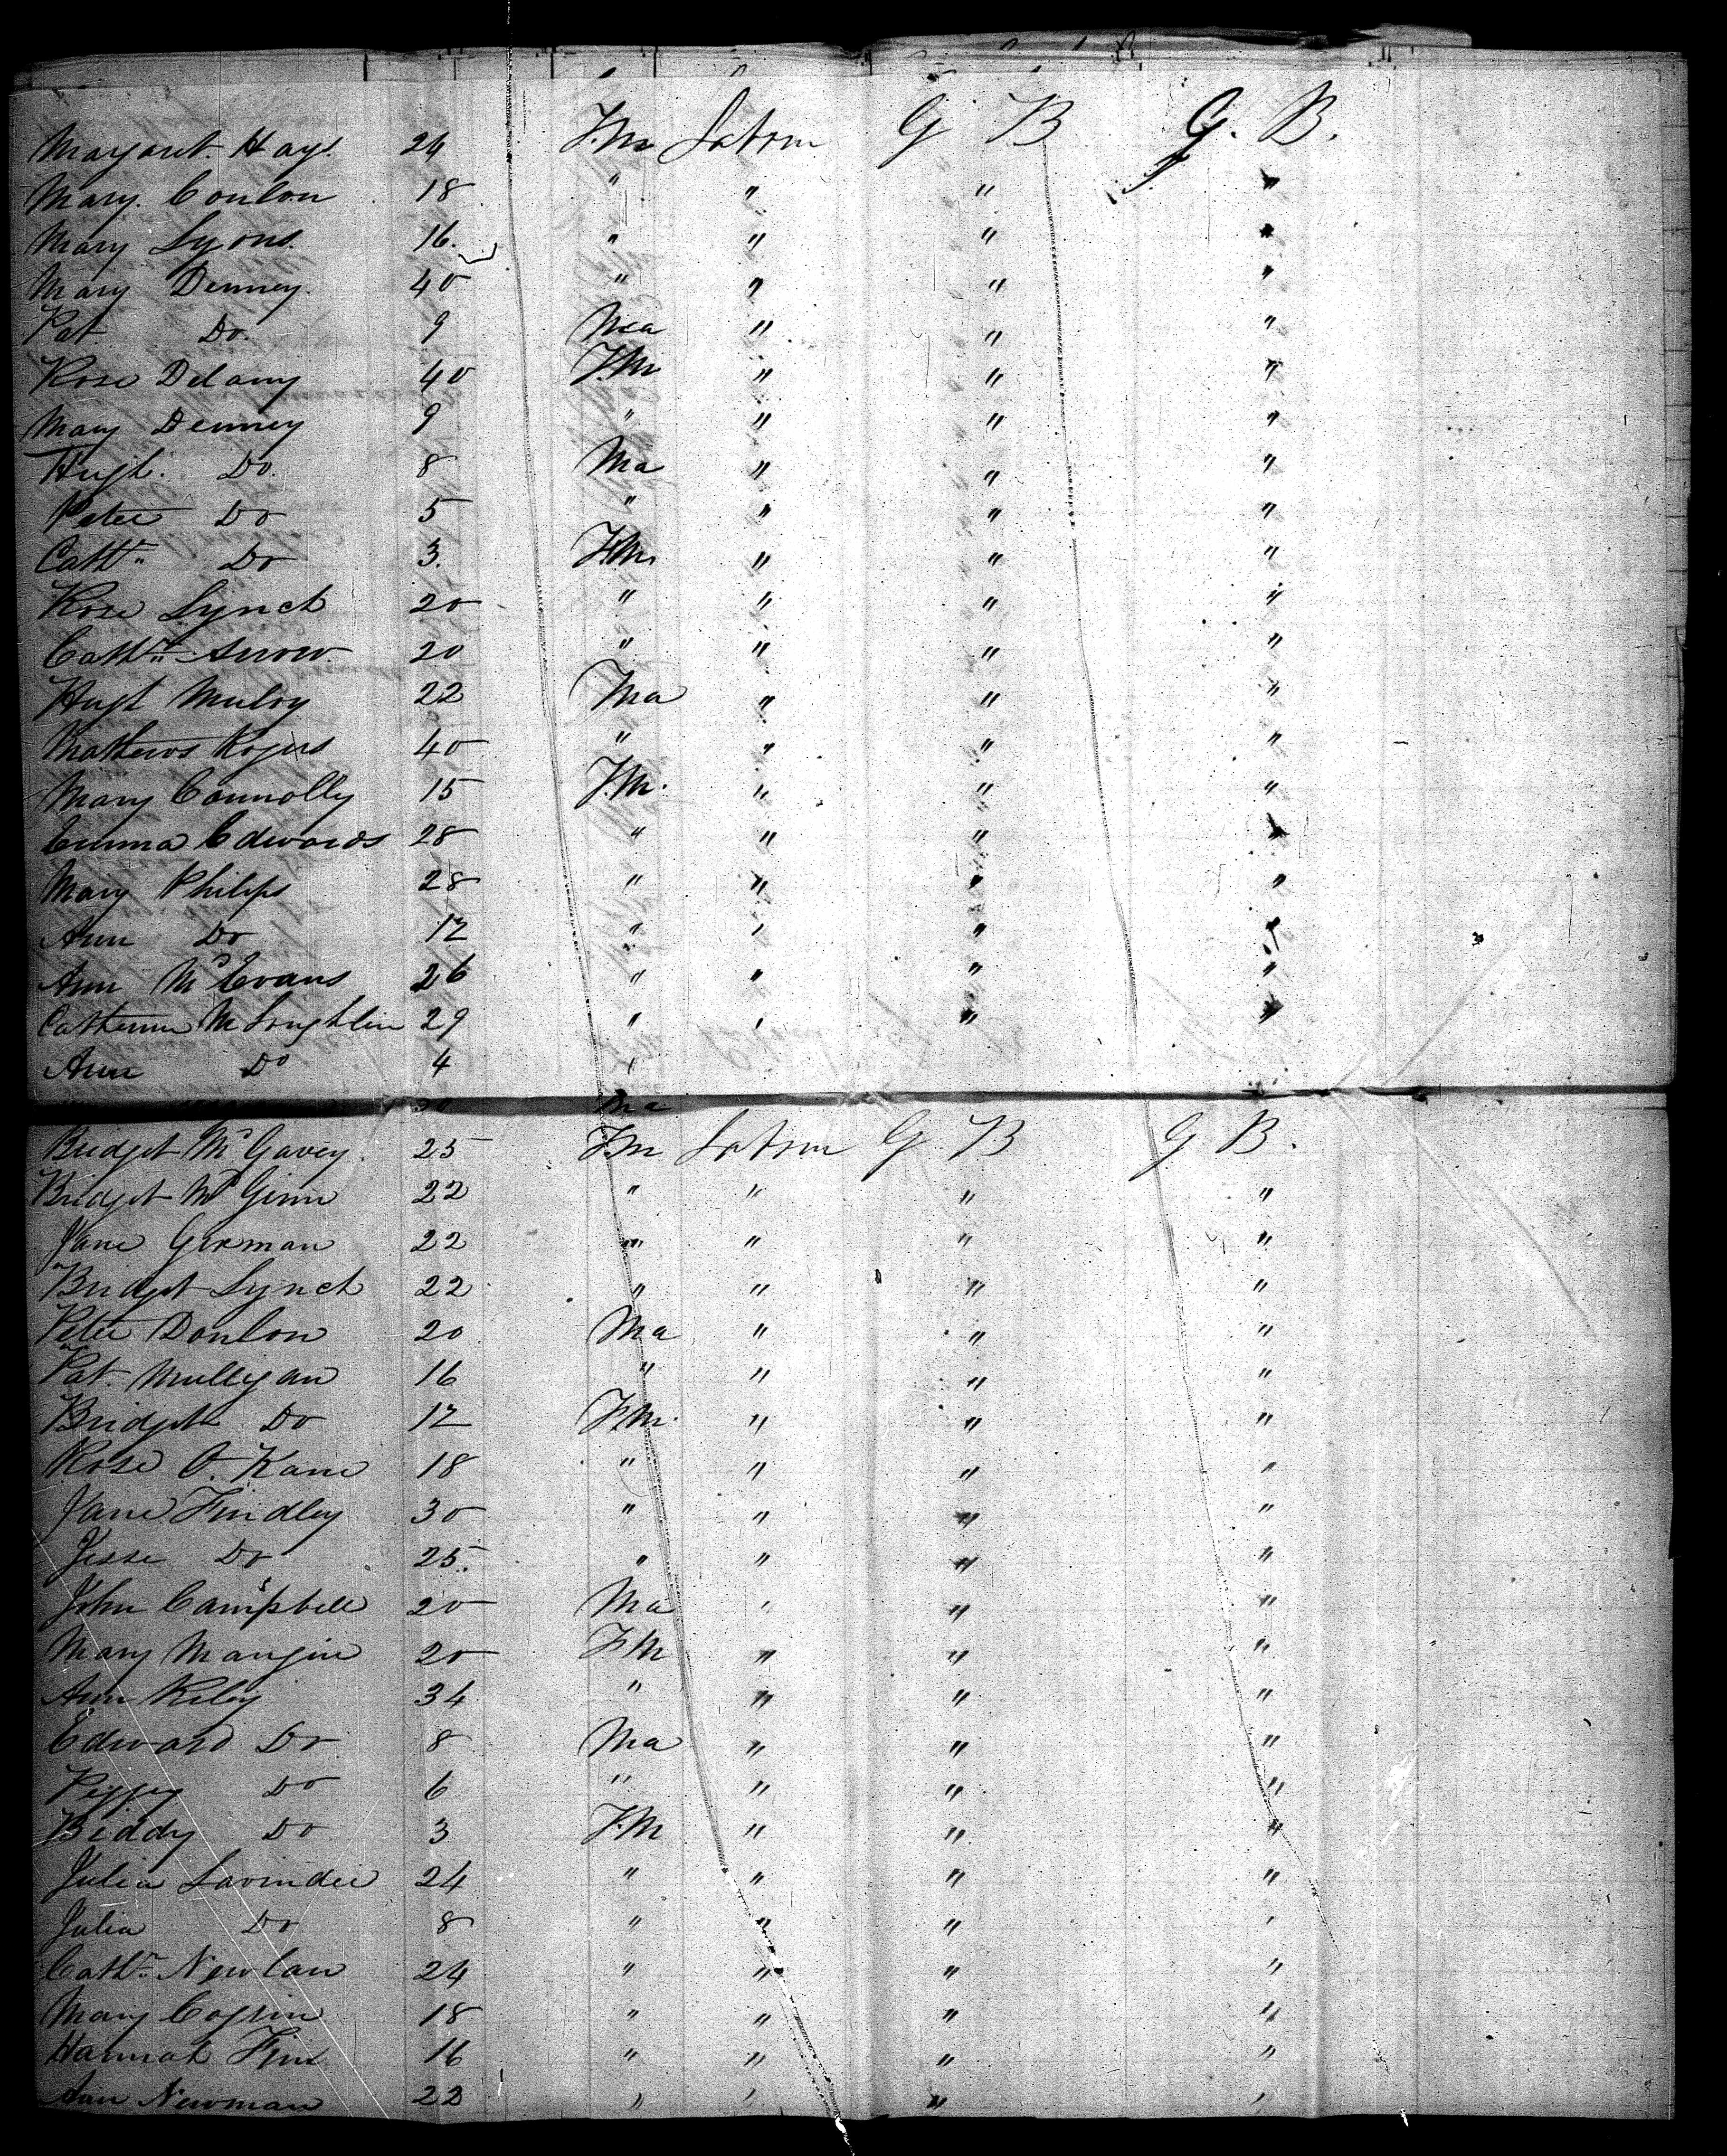 Margaret Hays 24 Fm Labour G B G. B.
Mary Conlon 18 " " " "
Mary Lyons 16. " " " "
Mary Denney 40 " " " "
Pat Do. 9 Ma " " "
Rose Delany 40 Fm " " "
Mary Denney 9 " " " "
Hugh Do. 8 Ma " " "
Peter Do 5 " " " "
Cathn Do 3. Fm " " "
Rose Lynch 20 " " " "
Cathn 20 " " " "
Hugh Mulvy 22 Ma " " "
Mathews Rogers 40 " " " "
Mary Connolly 15 Fm. " " "
Emma Edwards 28 " " " "
Mary Philips 28 " " " "
Ann Do 12 " " " "
Ann McEvans 26 " " " "
Catherine McLoughlin 29 " " " "
Ann Do 4 "
30 Ma
Bridget McGavey. 25 Fm Labour G B G B.
Bridget McGinn 22 " " " "
Jane German 22 " " " "
Bridget Lynch 22 " " " "
Peter Donlon 20 Ma " " "
Pat. Mulligan 16 " " " "
Bridget Do 12 Fm. " " "
Rose O. Kane 18 " " " "
Jane Findley 30 " " " "
Jesse Do 25. " " " "
John Campbell 20 Ma " " "
Mary Mangin 20 Fm " " "
Ann Riley 34 " " " "
Edward Do 8 Ma " " "
Peggy Do 6 " " " "
Biddy Do 3 Fm " " "
Julia Lavinder 24 " " " "
Julia Do 8 " " " "
Cathn Newlan 24 " " " "
Mary 18 " " " "
Hannah Finn 16 " " " "
Ann Newman 22 " " " "